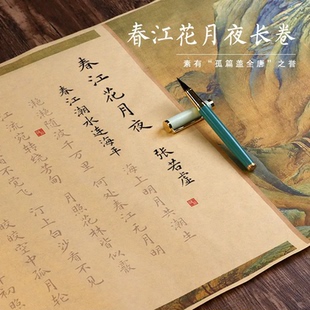 春江花月夜长卷
素有“孤篇盖全唐”之誉
春江花月夜
张若虚
春江潮水连海平
海上明月共潮生
滟滟随波千万里
何处春江无月明
江流宛转绕芳甸
月照花林皆似霰
不觉飞
汀上白沙看不见
皎空中孤月轮